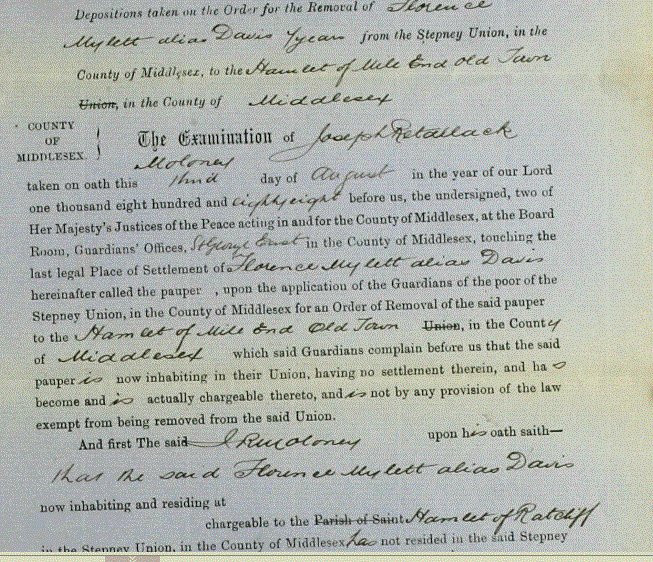 Depositions taken on the Order for the Removal of Florence
Mylett alias Davis 7 years from the Stepney Union, in the
County of Middlesex, to the Hamlet of Mile End Old Town
Union, in the County of Middlesex
COUNTY
OF
MIDDLESEX.
The Examination of Joseph Retallack
Moloney
taken on oath this third day of August in the year of our Lord
one thousand eight hundred and eighty eight before us, the undersigned, two of
Her Majesty's Justices of the Peace acting in and for the County of Middlesex, at the Board
Room, Guardians' Offices, St George East in the County of Middlesex, touching the
last legal Place of Settlement of Florence Mylett alias Davis
hereinafter called the pauper , upon the application of the Guardians of the poor of the
Stepney Union, in the County of Middlesex for an Order of Removal of the said pauper
to the Hamlet of Mile End Old Town Union, in the County
of Middlesex which said Guardians complain before us that the said
pauper is now inhabiting in their Union, having no settlement therein, and ha s
become and is actually chargeable thereto, and is not by any provision of the law
exempt from being removed from the said Union.
And first The said J R Moloney upon his oath saith—
that the said Florence Mylett alias Davis
now inhabiting and residing at
chargeable to the Parish of Saint Hamlet of Ratcliff
in the Stepney Union, in the County of Middlesex has not resided in the said Stepney